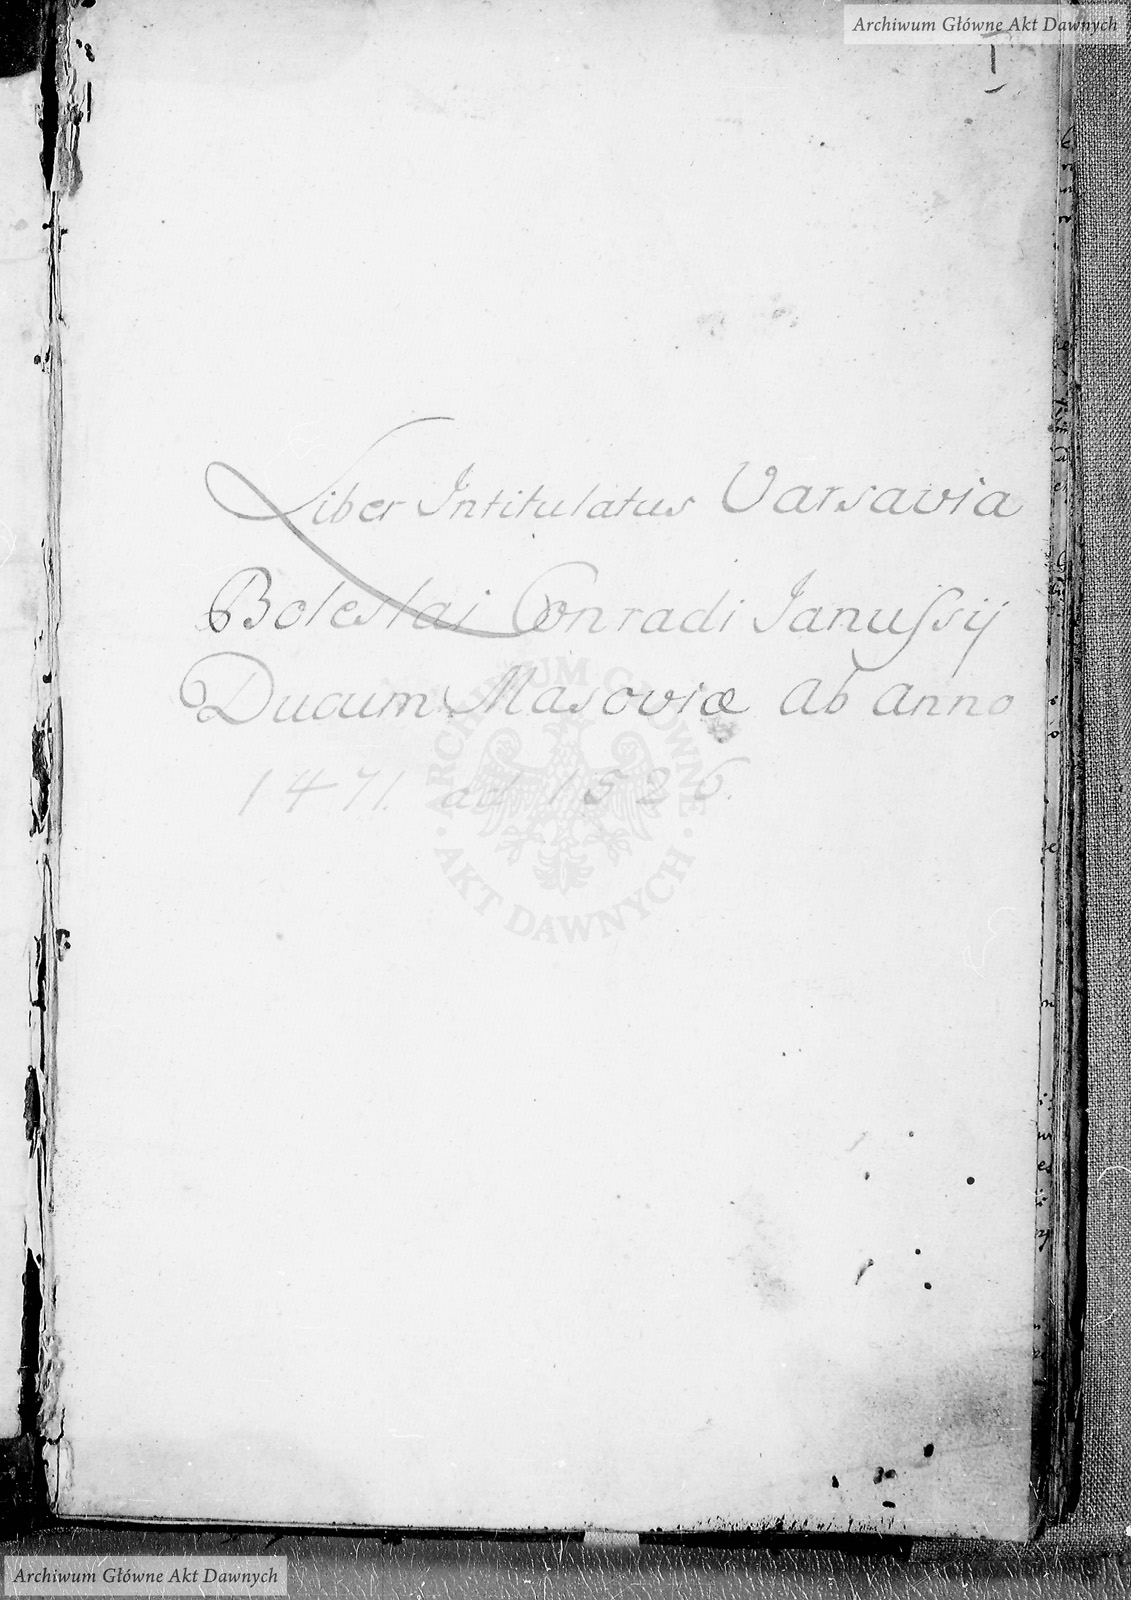 Archiwum Główne Akt Dawnych
I
Liber Intitulatus Varsavia
Boleslai Conradi Janußij
Ducum Masoviæ ab anno
1471. ad 1526.
ARCHIWUM GŁÓWNE
AKT DAWNYCH
Archiwum Główne Akt Dawnych